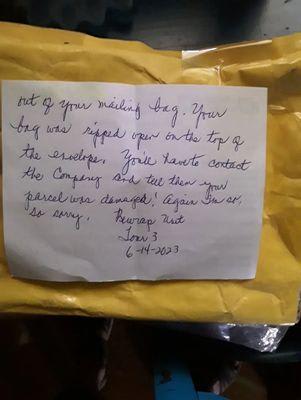 out of your mailing bag. Your
bag was ripped open on the top of
the envelope. You'll have to contact
the Company and tell them your
parcel was damaged! Again I'm so,
so sorry. Rewrap Unit
Tour 3
6-14-2023